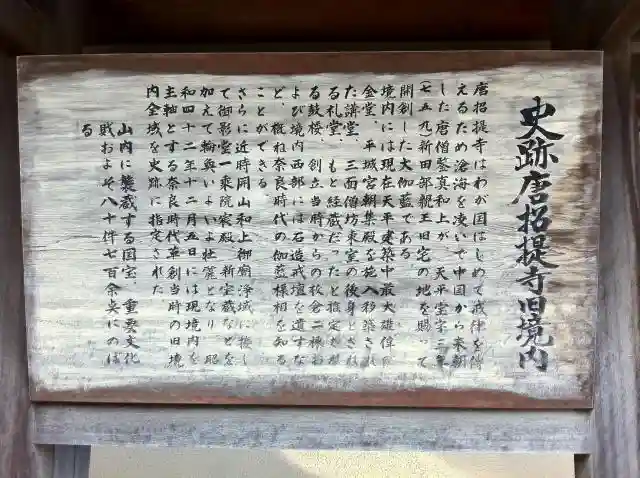 史跡唐招提寺旧境内
唐招提寺はわが国はじめて戒律を伝
えるため滄海を凌いで中国から来朝
した唐僧鑒真和上が、天平宝字三年
(七五九)新田部親王旧宅の地を賜って
開創した大伽藍である
境内には現在天平建築中最大雄偉の
金堂、平城宮朝集殿を施入移築され
た講堂、三面僧坊東室の後身とされ
る礼堂、もと経蔵だったと推定され
る鼓楼、創立当時からの校倉二棟お
よび境内西部には石造戒壇を遺すな
ど、概ね奈良時代の伽藍様相を知る
ことができる
さらに近時開山和上御廟浄域に接し
て御影堂一乗院宸殿、新宝蔵などを
加えて輪奐いよいよ壮麗となり、昭
和四十二年十二月五日には現境内を
主軸とする奈良時代草創当時の旧境
内全域を史跡に指定された
山内に襲蔵する国宝、重要文化
財およそ八十件七百余点にのぼ
る